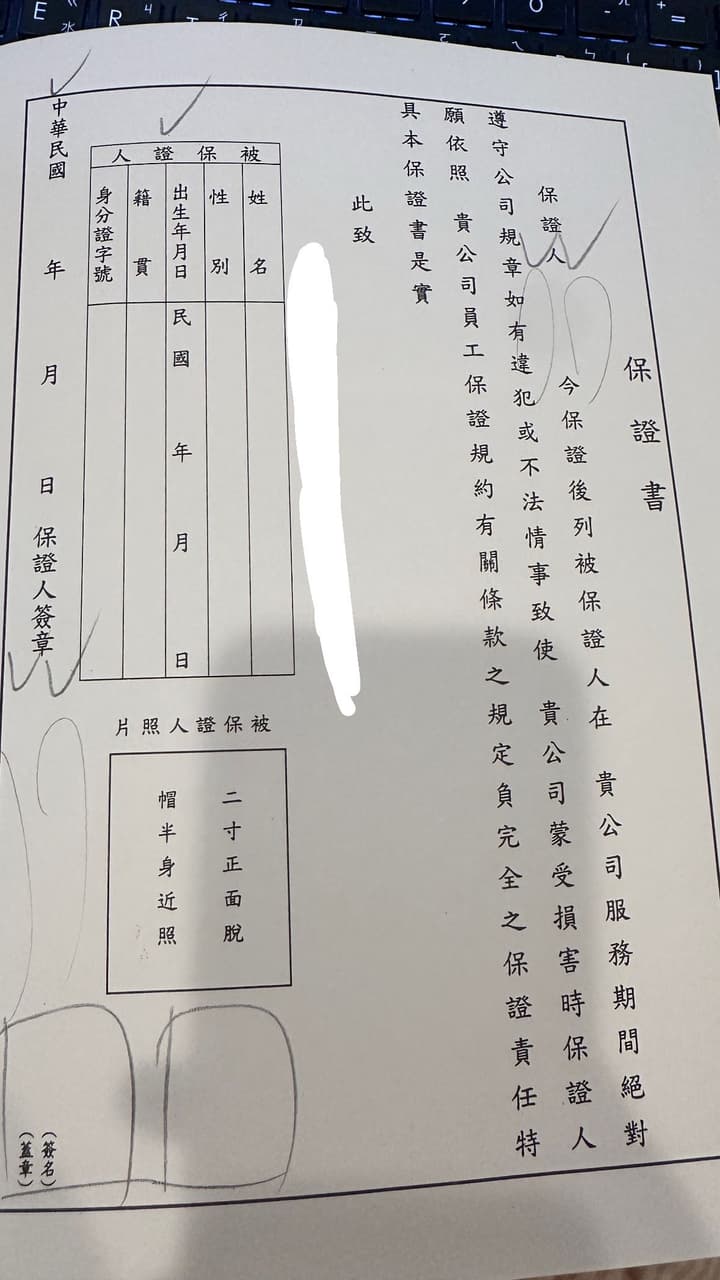 保證書
保證人 今保證後列被保證人在 貴公司服務期間絕對
遵守公司規章如有違犯或不法情事致使 貴公司蒙受損害時保證人
願依照 貴公司員工保證規約有關條款之規定負完全之保證責任特
具本保證書是實
此致
被保證人
姓名
性別
出生年月日 民國 年 月 日
籍貫
身分證字號
被保證人照片
二寸正面脫
帽半身近照
中華民國 年 月 日 保證人簽章
(簽名)
(蓋章)
E
R
ㄐ
水
O
-
+
=